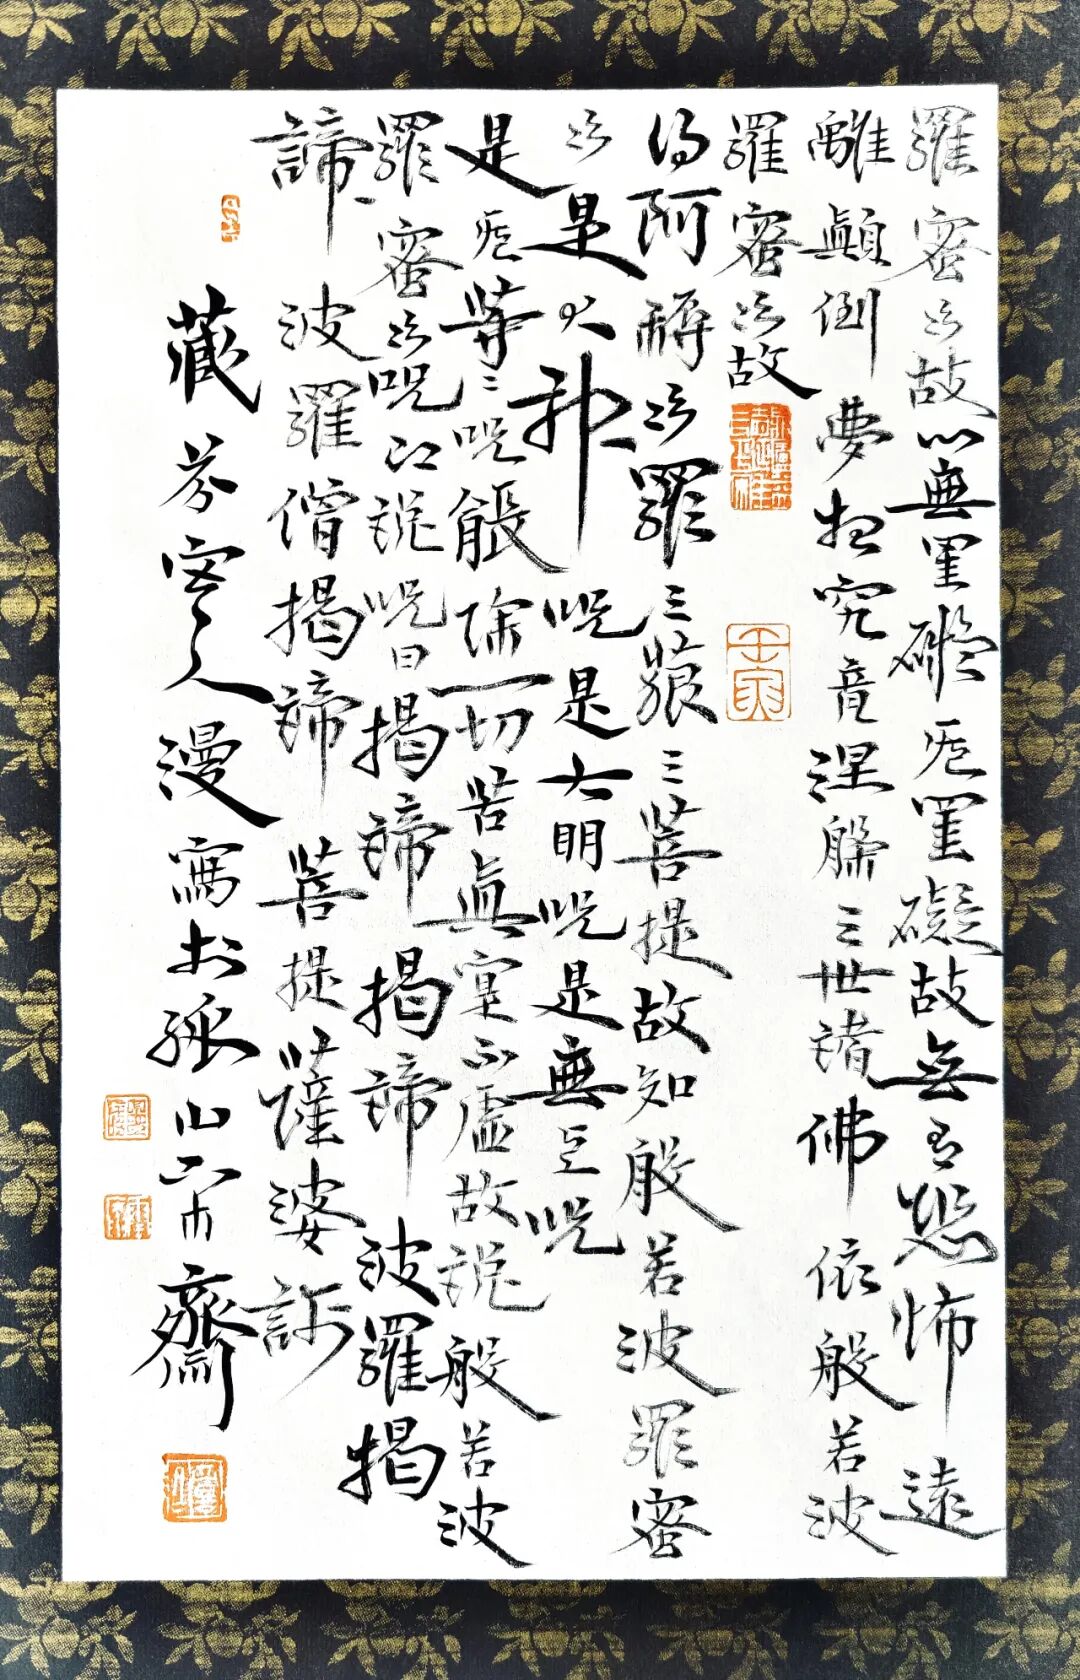 羅蜜多故心無罣礙無罣礙故無有恐怖遠
離顛倒夢想究竟涅槃三世諸佛依般若波
羅蜜多故
得阿耨多羅三藐三菩提故知般若波羅蜜
多是大神咒是大明咒是無上咒
是無等等咒能除一切苦真實不虛故說般若波
羅蜜多咒即說咒曰揭諦揭諦波羅揭
諦波羅僧揭諦菩提薩婆訶
藏芬室人漫寫於孤山不*齋